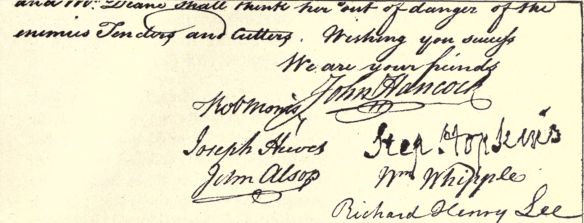 and Mr. Deane shall think her out of danger of the
enemies Tenders and Cutters. Wishing you success
We are your friends
John Hancock
Rob Morris
Joseph Hewes
Step. Hopkins
John Alsop
Wm Whipple
Richard Henry Lee